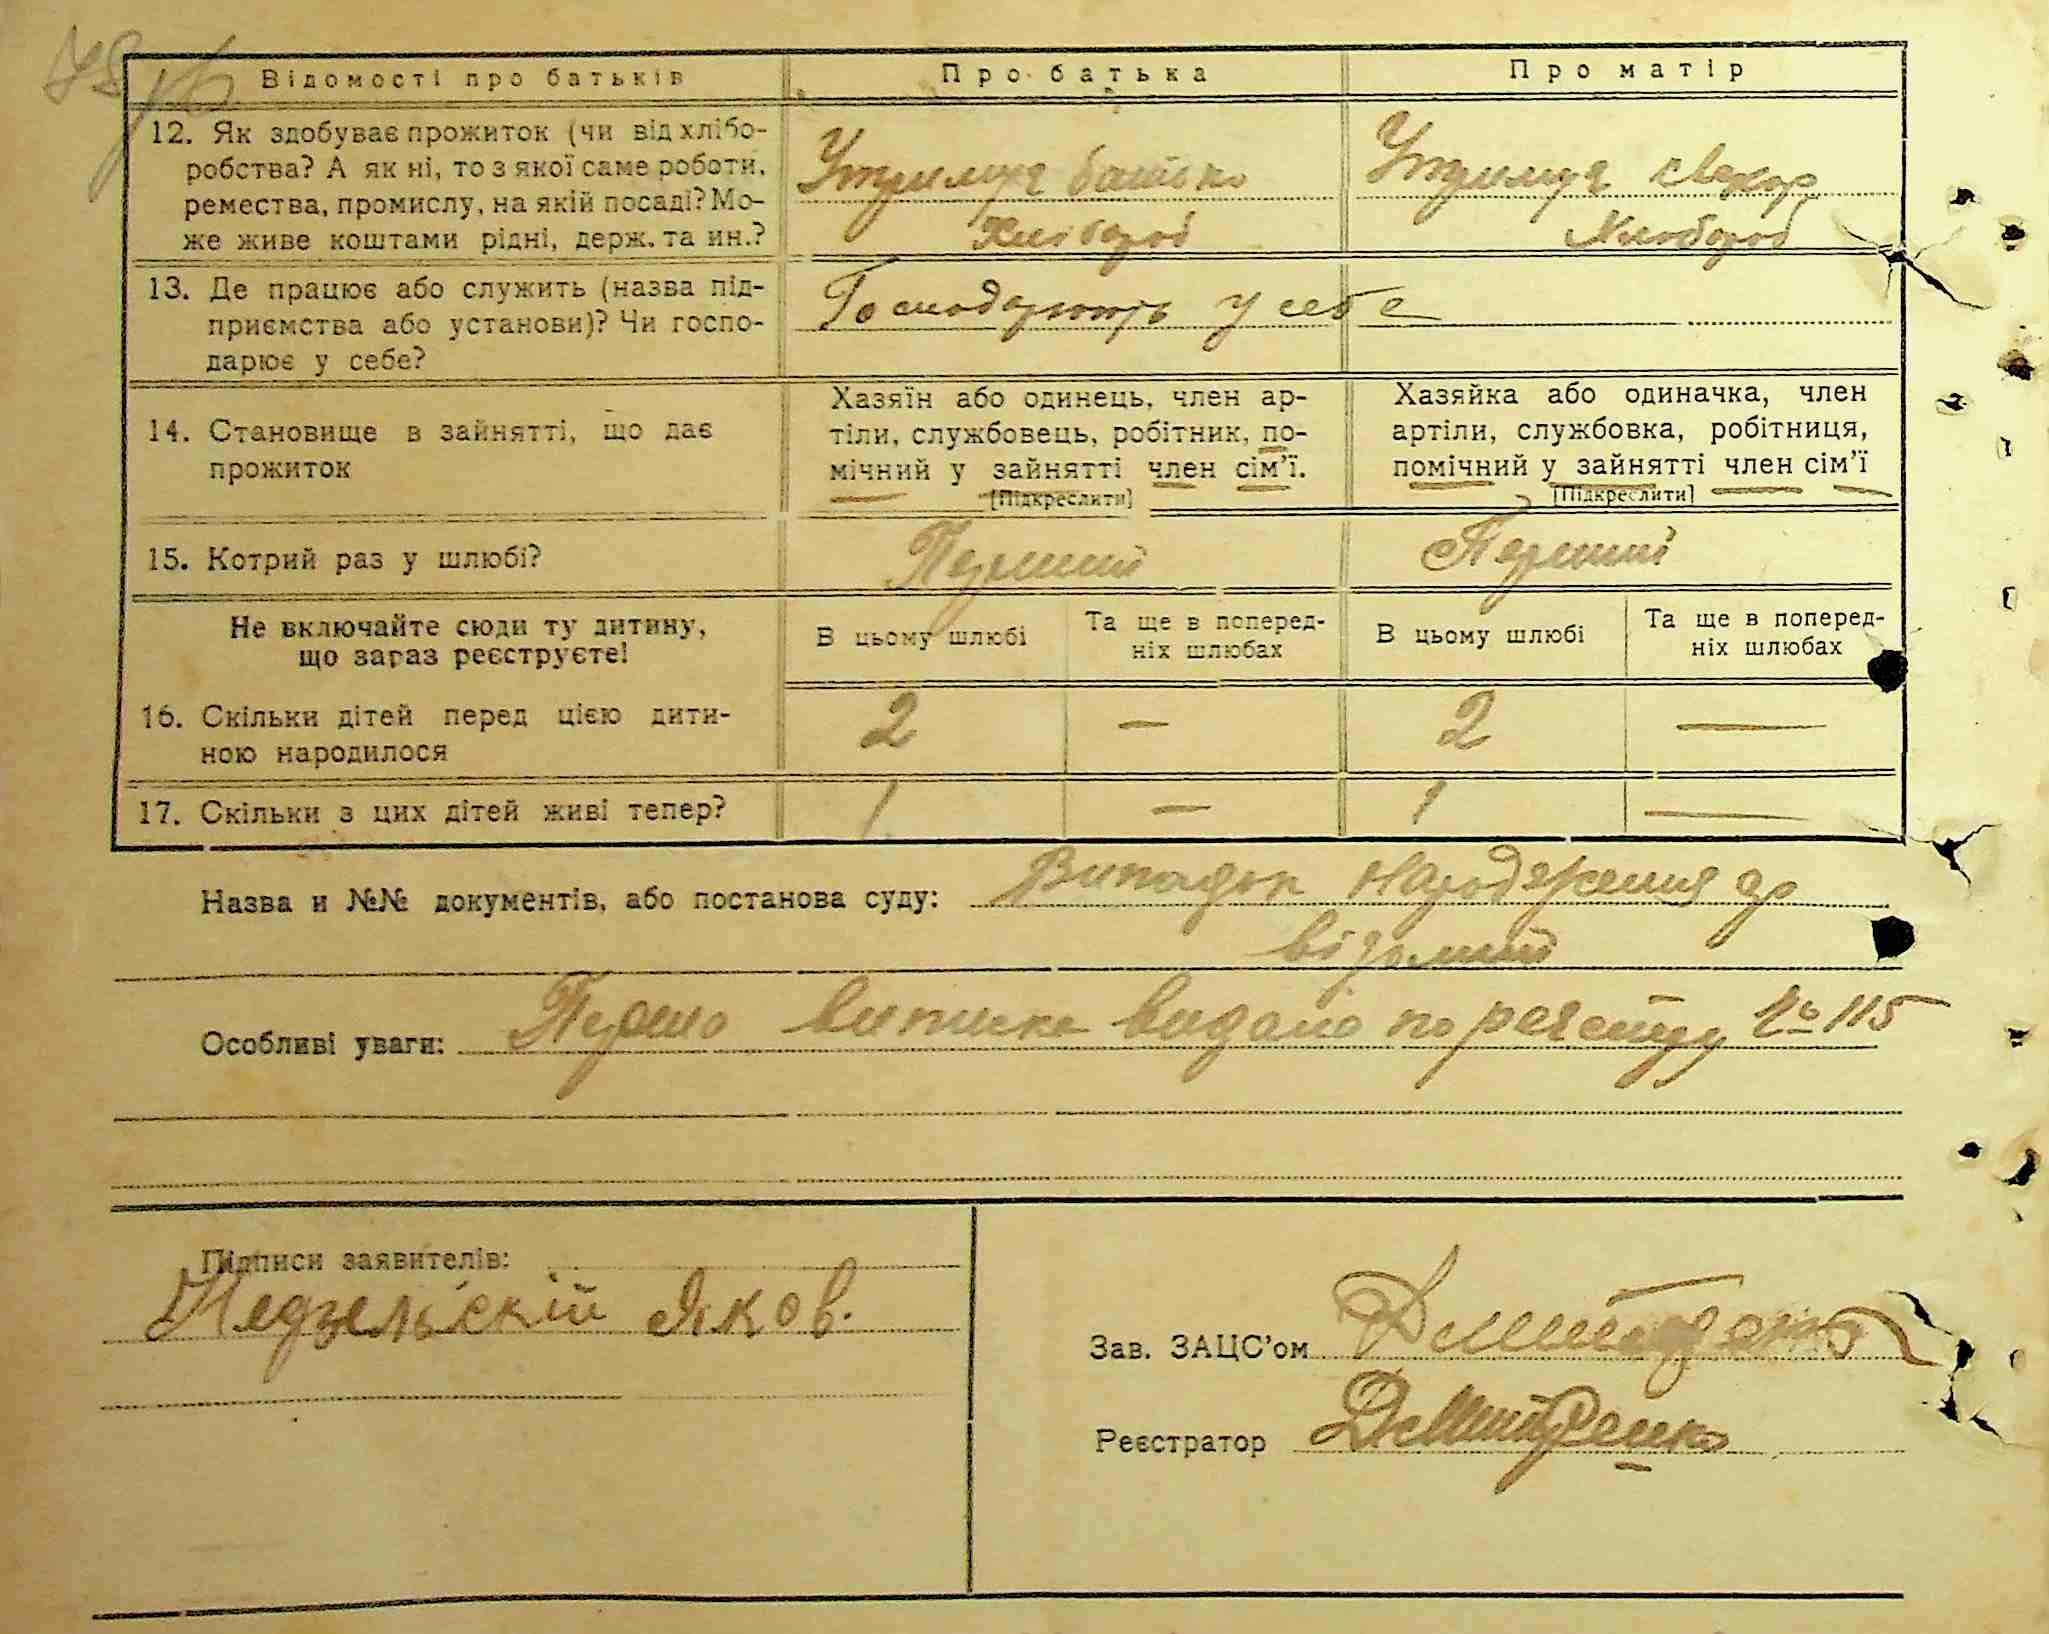 Відомості про батьків
Про батька
Про матір
12. Як здобуває прожиток (чи від хлібо-
робства? А як ні, то з якої саме роботи,
ремества, промислу, на якій посаді? Мо-
же живе коштами рідні, держ. та ин.?
Утримує батько
Хлібороб
Утримує свекор
Хлібороб
13. Де працює або служить (назва під-
приємства або установи)? Чи госпо-
дарює у себе?
Господарюють у себе
14. Становище в зайнятті, що дає
прожиток
Хазяїн або одинець, член ар-
тіли, службовець, робітник, по-
мічний у зайнятті член сім'ї.
[Підкреслити]
Хазяйка або одиначка, член
артіли, службовка, робітниця,
помічний у зайнятті член сім'ї
[Підкреслити]
15. Котрий раз у шлюбі?
Перший
Перший
Не включайте сюди ту дитину,
що зараз реєструєте!
В цьому шлюбі
Та ще в поперед-
ніх шлюбах
В цьому шлюбі
Та ще в поперед-
ніх шлюбах
16. Скільки дітей перед цією дити-
ною народилося
2 — 2 —
17. Скільки з цих дітей живі тепер?
1 — 1 —
Назва и №№ документів, або постанова суду: Випадок народження
Особливі уваги: виписка видано по реєстру № 115
Підписи заявителів:
Недзельскій Яков.
Зав. ЗАЦС'ом Дмитренко
Реєстратор Дмитренко